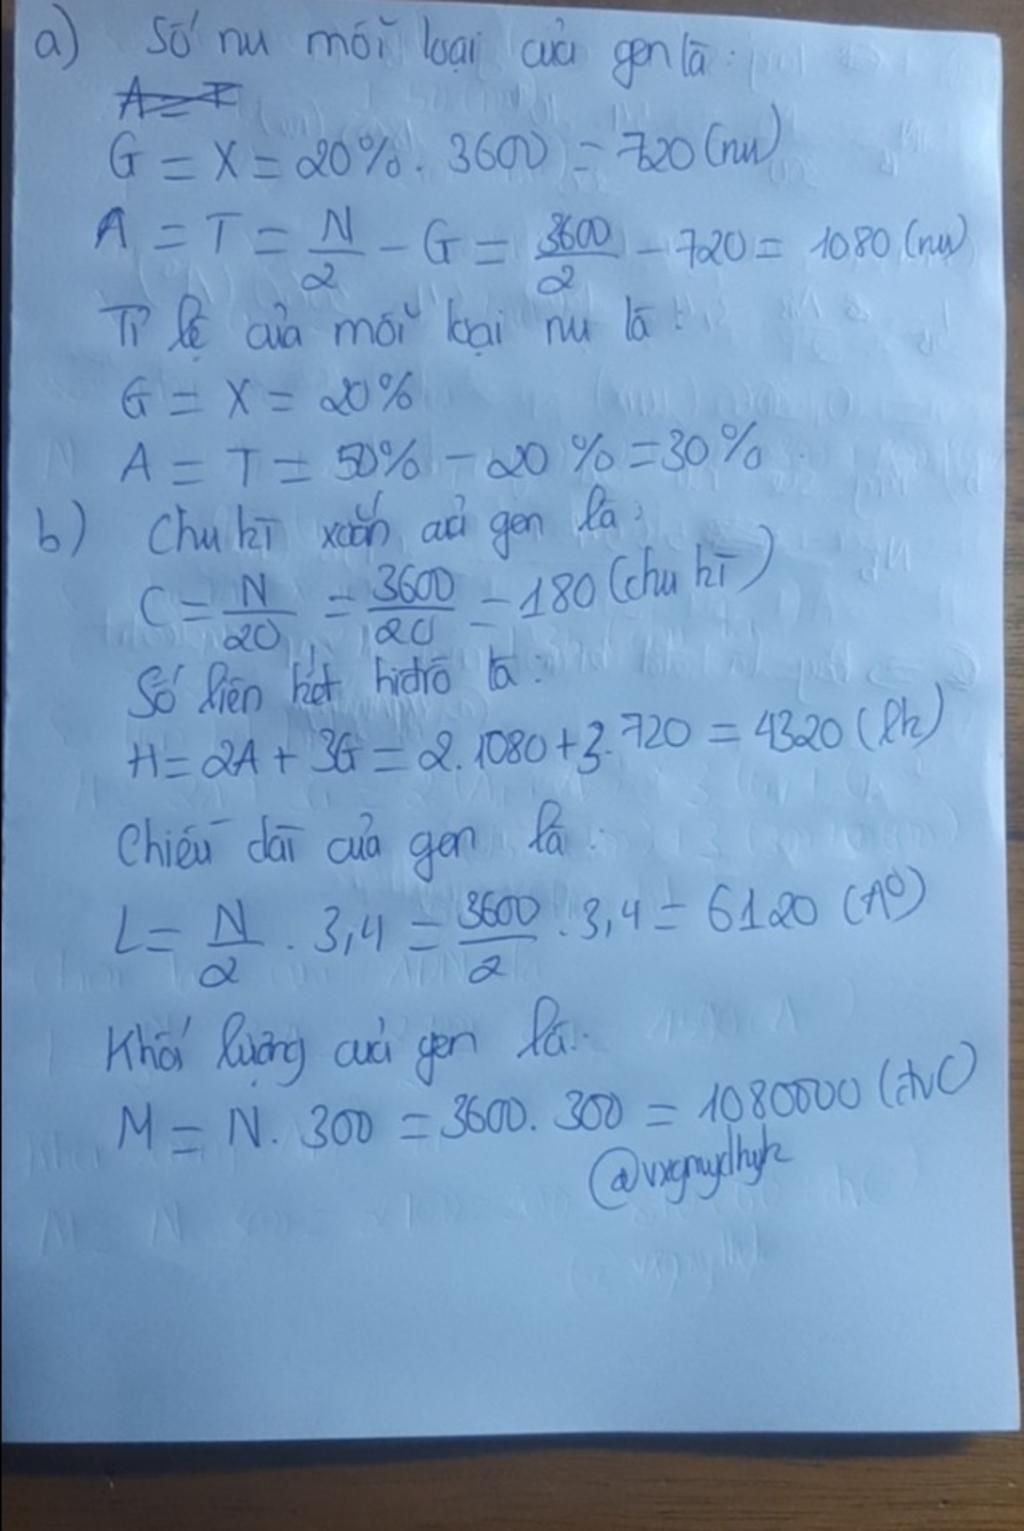 a) Số nu mỗi loại của gen là:
A = T
G = X = 20%. 3600 = 720 (nu)
A = T = N/2 - G = 3600/2 - 720 = 1080 (nu)
Tỉ lệ của mỗi loại nu là:
G = X = 20%
A = T = 50% - 20% = 30%
b) Chu kì xoắn của gen là:
C = N/20 = 3600/20 = 180 (chu kì)
Số liên kết hidrô là:
H = 2A + 3G = 2.1080 + 3.720 = 4320 (lk)
Chiều dài của gen là:
L = N/2 . 3,4 = 3600/2 . 3,4 = 6120 (A⁰)
Khối lượng của gen là:
M = N. 300 = 3600. 300 = 1080000 (đvC)